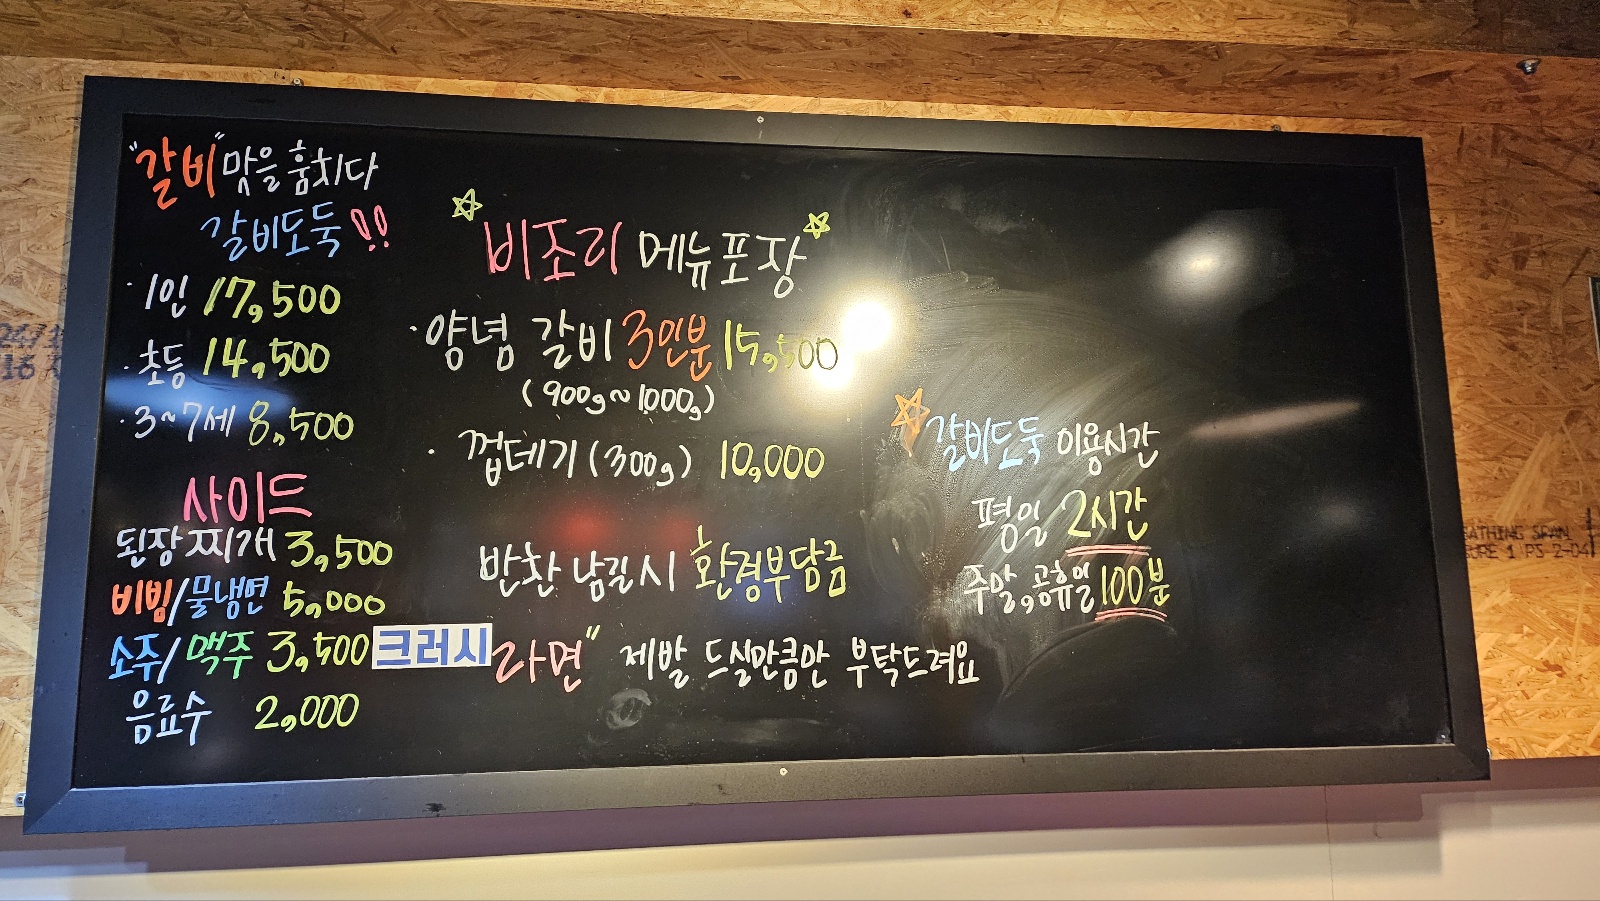 "갈비" 맛을 훔치다
갈비도둑!!
· 1인 17,500
· 초등 14,500
· 3~7세 8,500
사이드
된장찌개 3,500
비빔/물냉면 5,000
소주/맥주 3,500 크러시
음료수 2,000
비조리 메뉴포장
· 양념 갈비 3인분 15,500
(900g~1000g)
· 껍데기 (300g) 10,000
반찬 남길시 환경부담금
라면" 제발 드실만큼만 부탁드려요
갈비도둑 이용시간
평일 2시간
주말,공휴일 100분